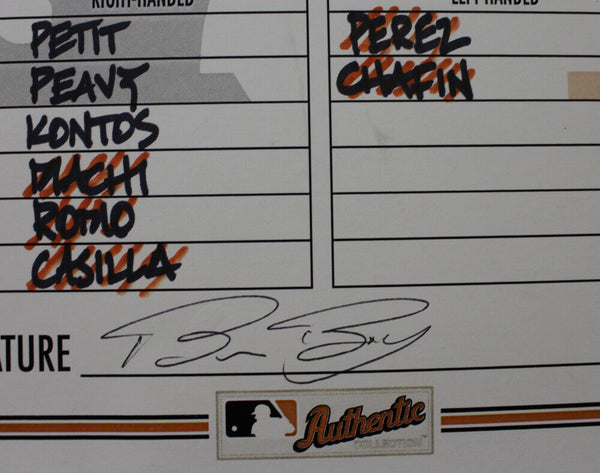 RIGHT-HANDED
PETIT
PEAVY
KONTOS
MACHI
ROMO
CASILLA
LEFT-HANDED
PEREZ
CHAFIN
ATURE
Authentic
COLLECTION™